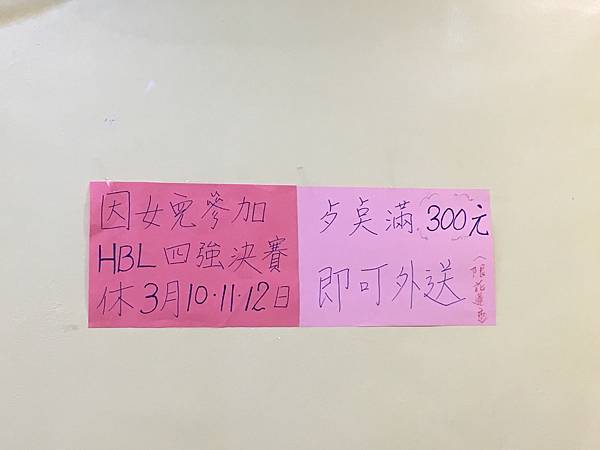 因女兒參加
HBL四強決賽
休3月10·11·12日
歺奌滿300元
即可外送
(限花蓮市)